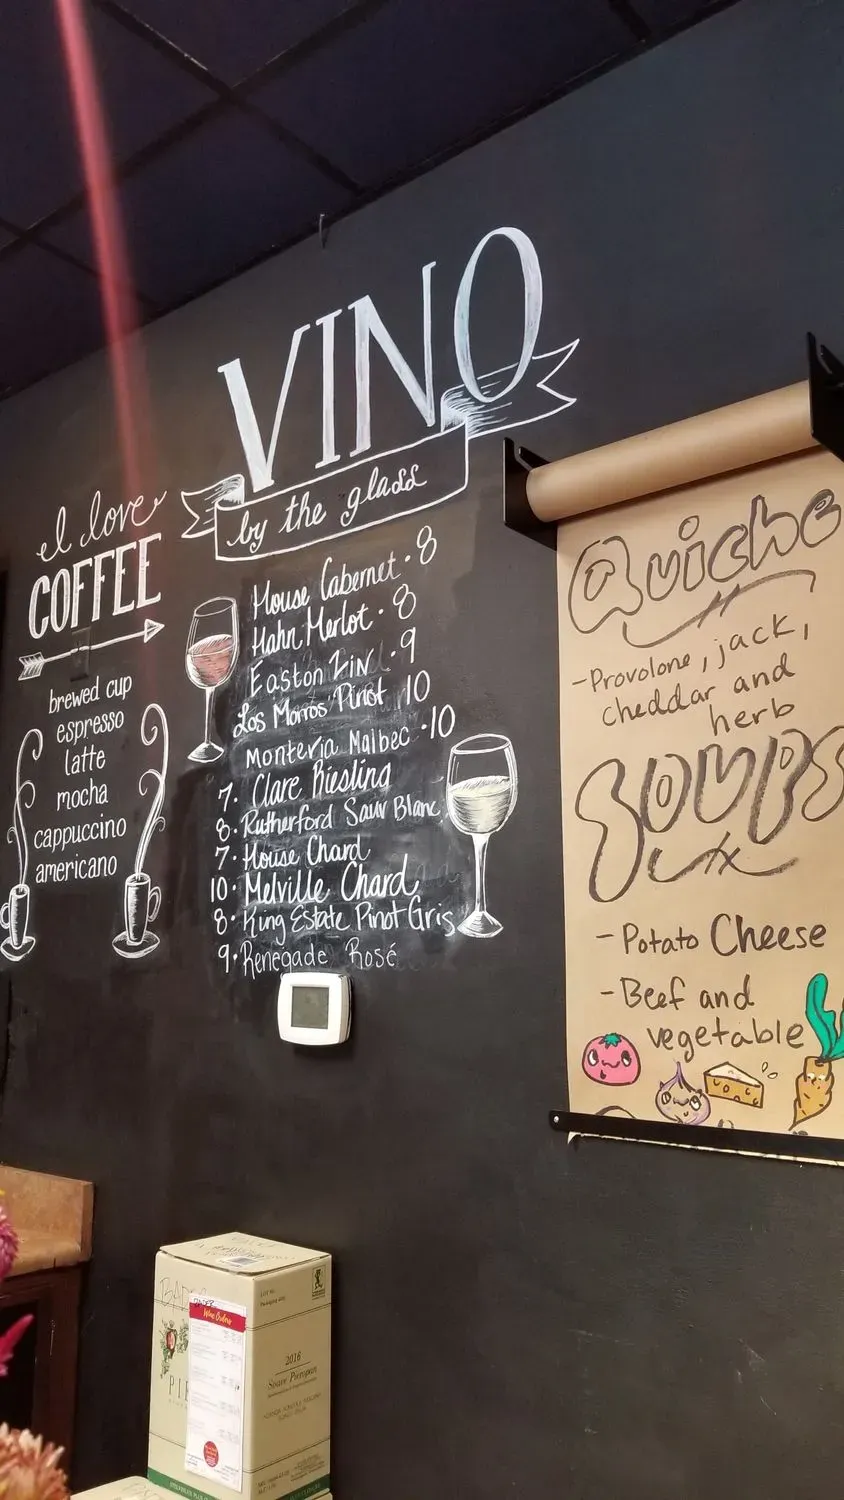 VINO
by the glass
House Cabernet · 8
Hahn Merlot · 8
Easton Zin · 9
Los Morros Pinot 10
Monteria Malbec · 10
7 · Clare Riesling
8 · Rutherford Sauv Blanc
7 · House Chard
10 · Melville Chard
8 · King Estate Pinot Gris
9 · Renegade Rosé
I love
COFFEE
brewed cup
espresso
latte
mocha
cappuccino
americano
Quiche
- Provolone, jack,
cheddar and
herb
SOUPS
- Potato Cheese
- Beef and
vegetable
Wine Orders
2016
Soave Pieropan